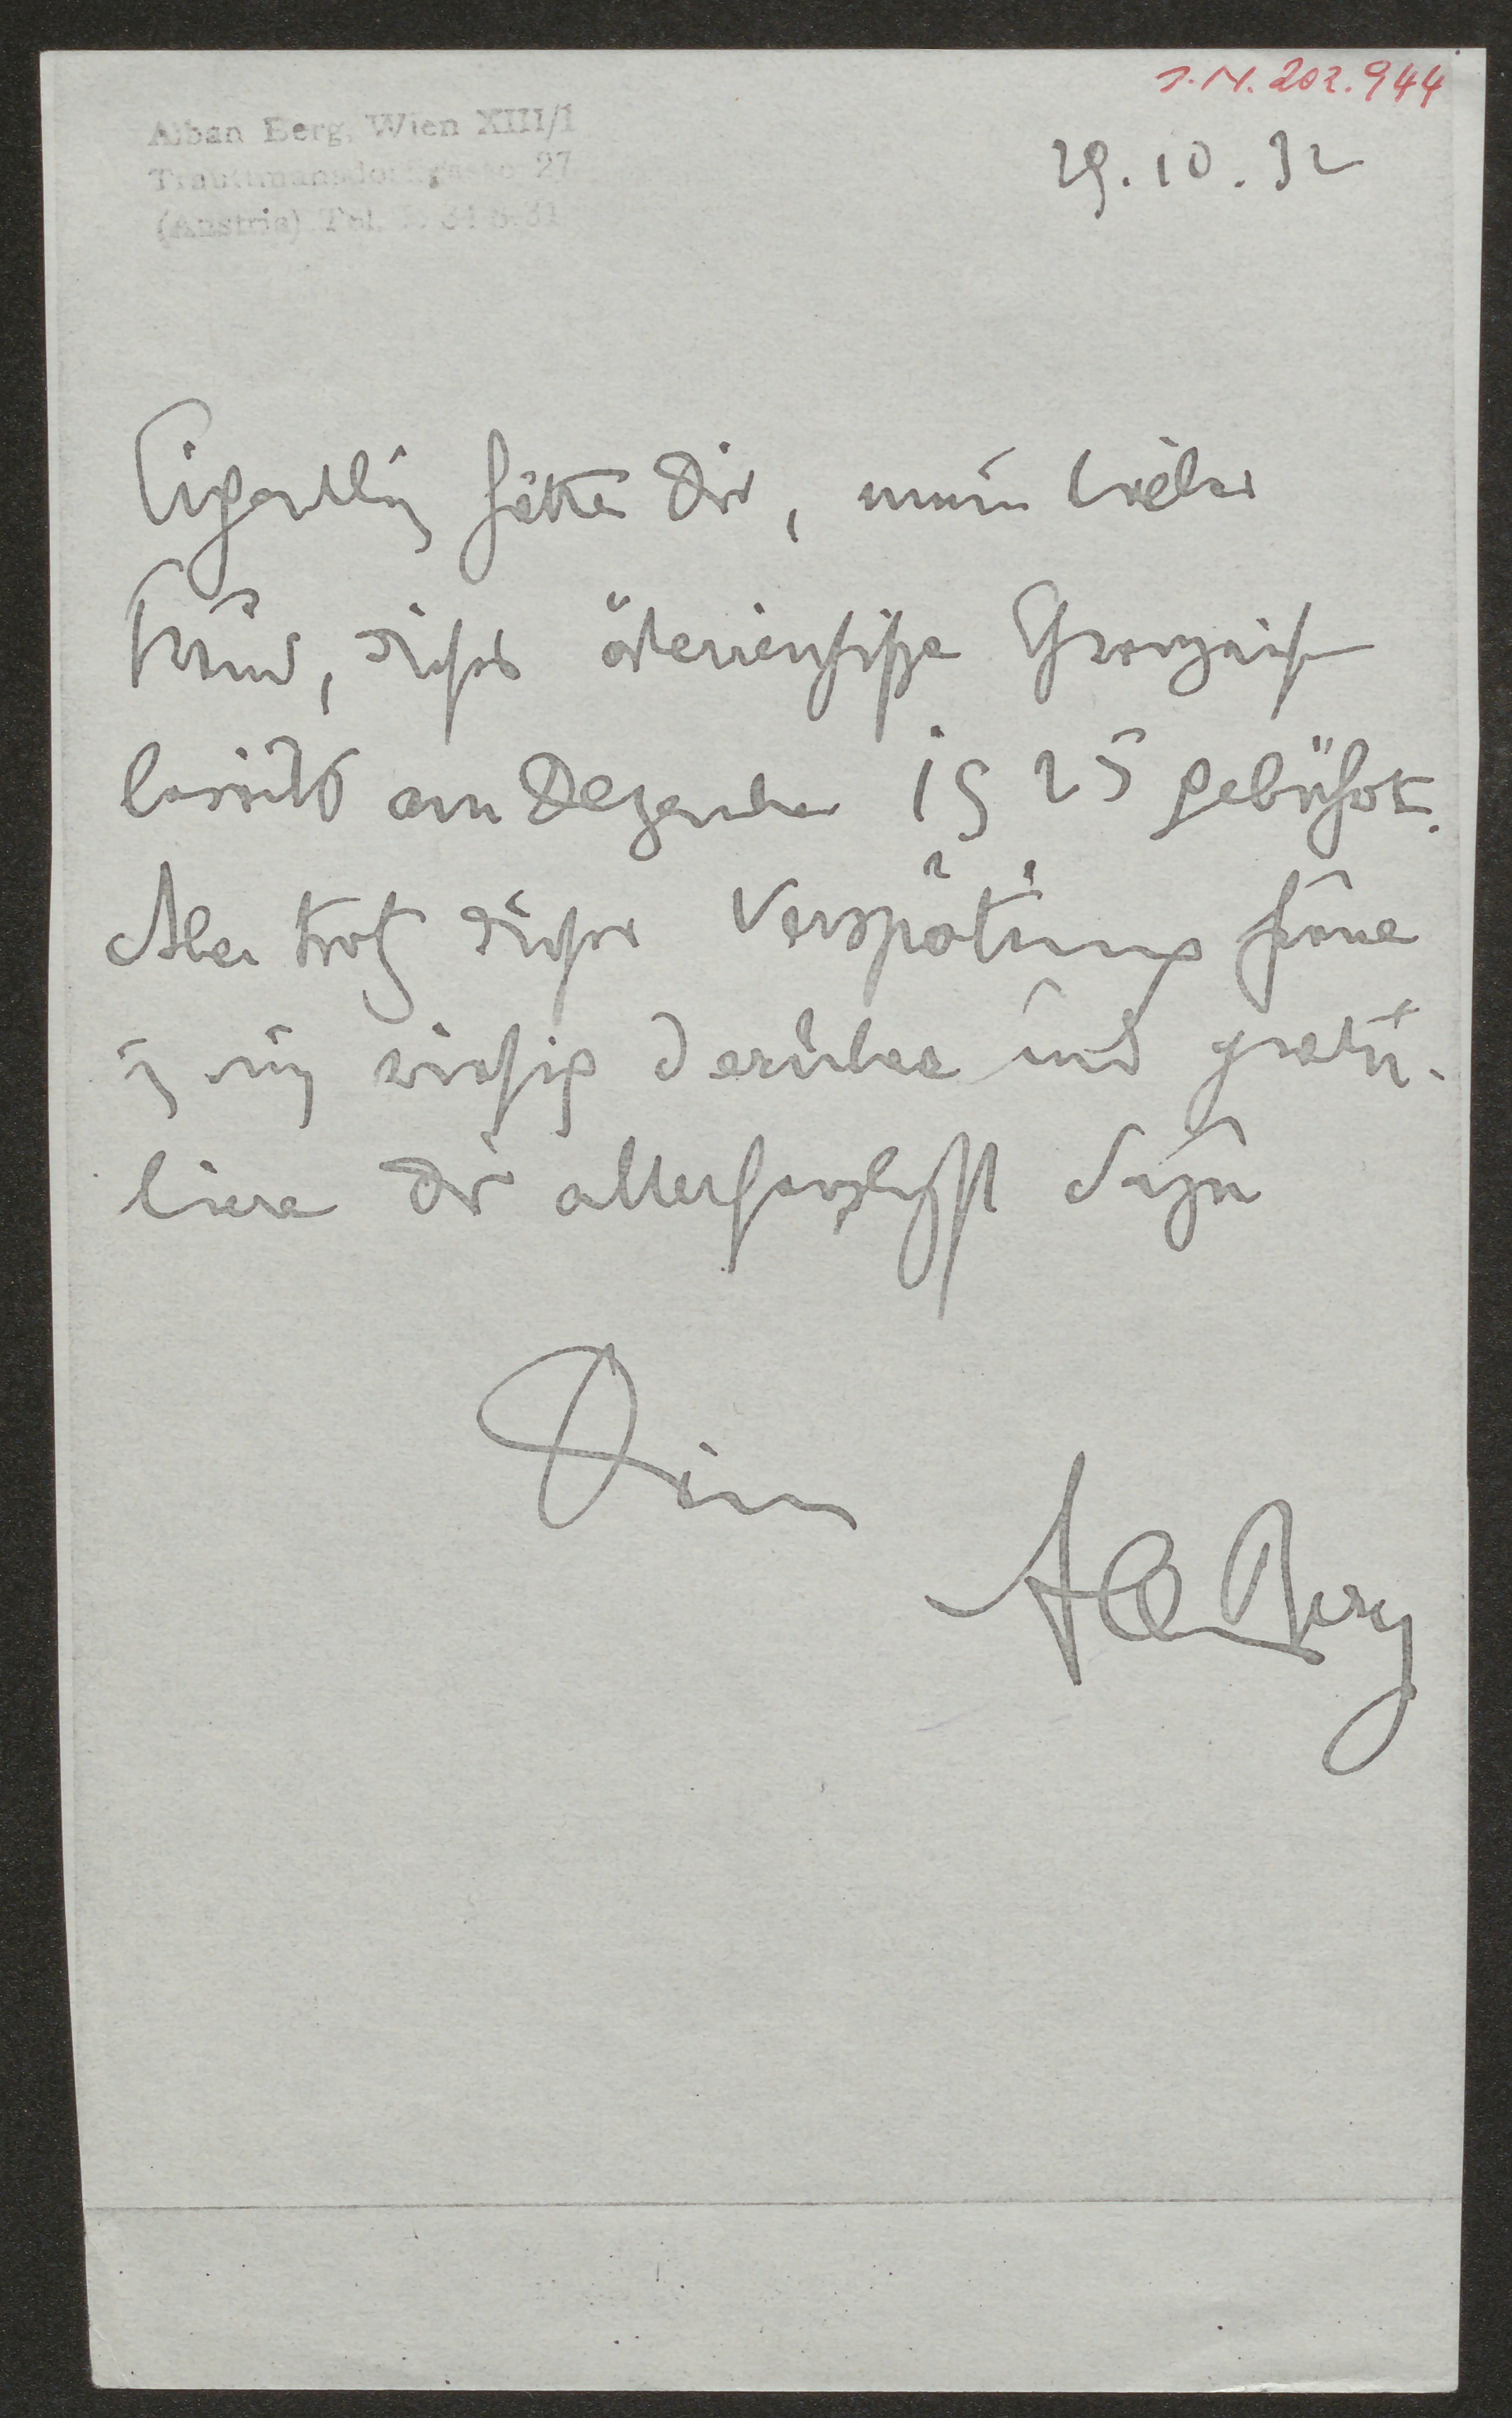 J.N. 202.944
Alban Berg, Wien XIII/1
Trauttmansdorffgasse 27
(Austria) Tel.
29.10.32
Eigentlich hätte Dir, mein lieber
Freund, dieses österreichische Ehrenzeichen
bereits am Dezember 1925 gebührt.
Aber trotz dieser Verspätung freue
ich mich riesig darüber und gratu-
liere Dir allerherzlichst dazu
Dein
Alban Berg